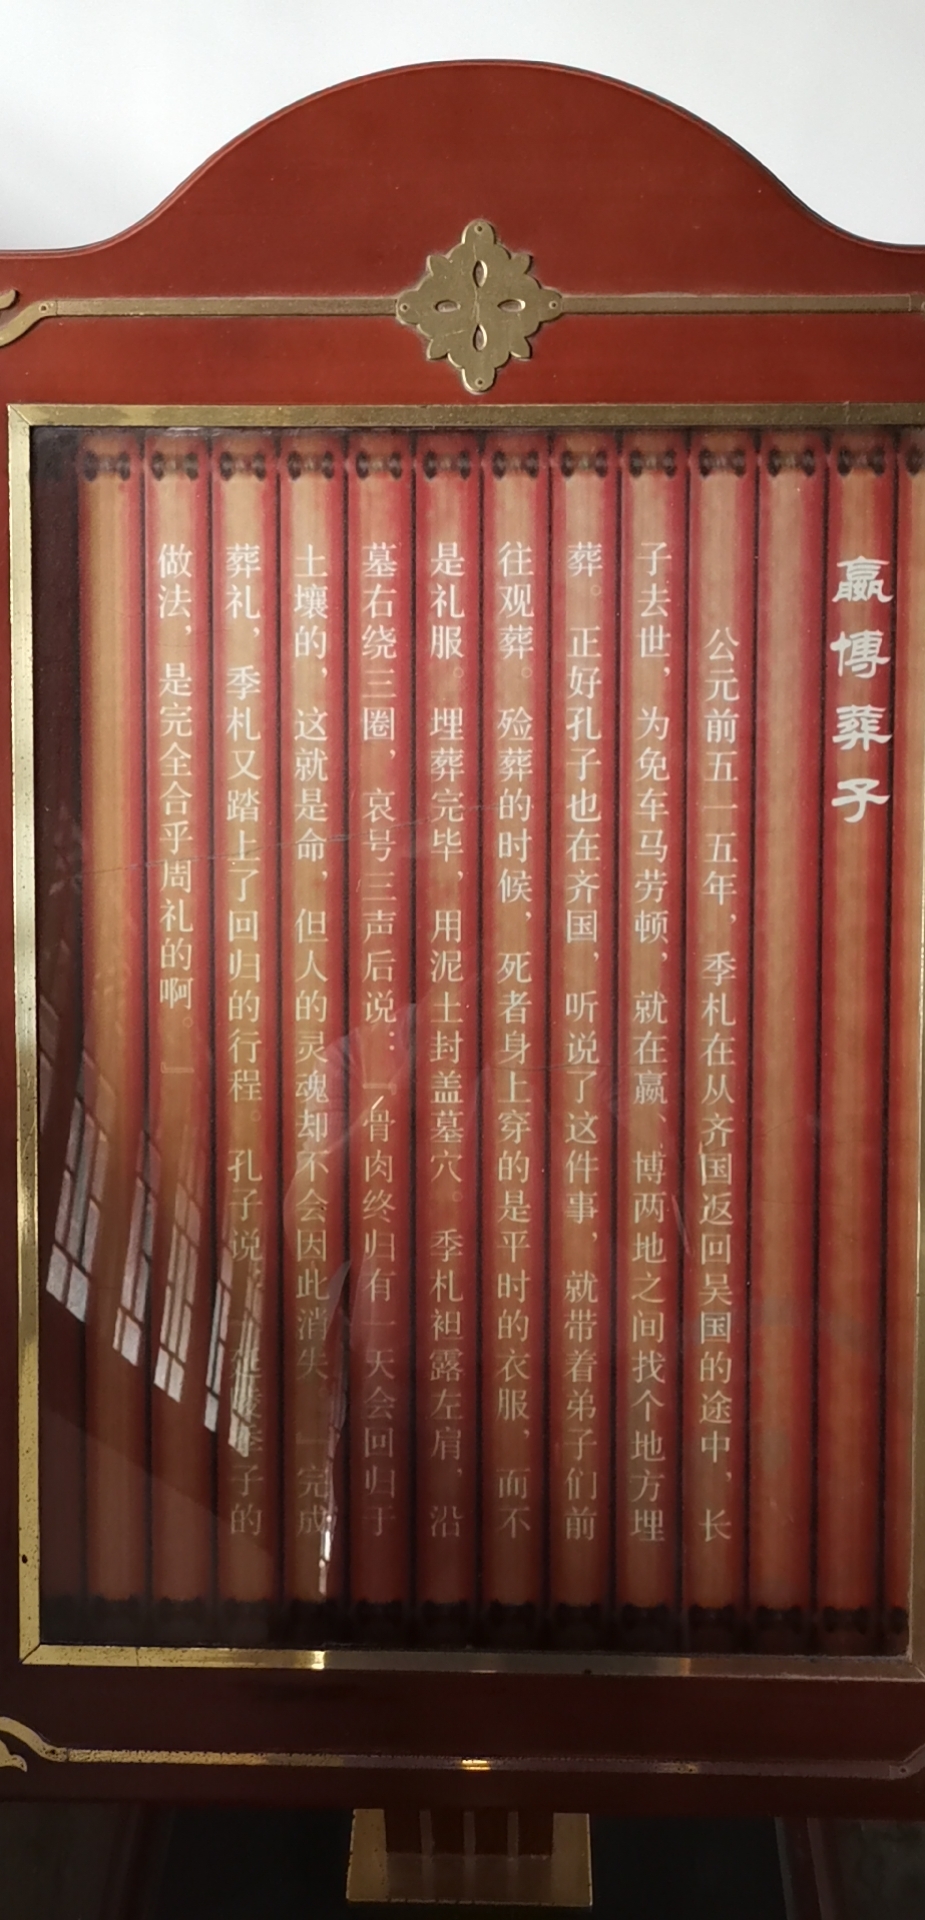 嬴博葬子
公元前五一五年，季札在从齐国返回吴国的途中，长
子去世，为免车马劳顿，就在嬴、博两地之间找个地方埋
葬。正好孔子也在齐国，听说了这件事，就带着弟子们前
往观葬。殓葬的时候，死者身上穿的是平时的衣服，而不
是礼服。埋葬完毕，用泥土封盖墓穴。季札袒露左肩，沿
墓右绕三圈，哀号三声后说：『骨肉终归有一天会回归于
土壤的，这就是命，但人的灵魂却不会因此消失。』完成
葬礼，季札又踏上了回归的行程。孔子说：『延陵季子的
做法，是完全合乎周礼的啊。』